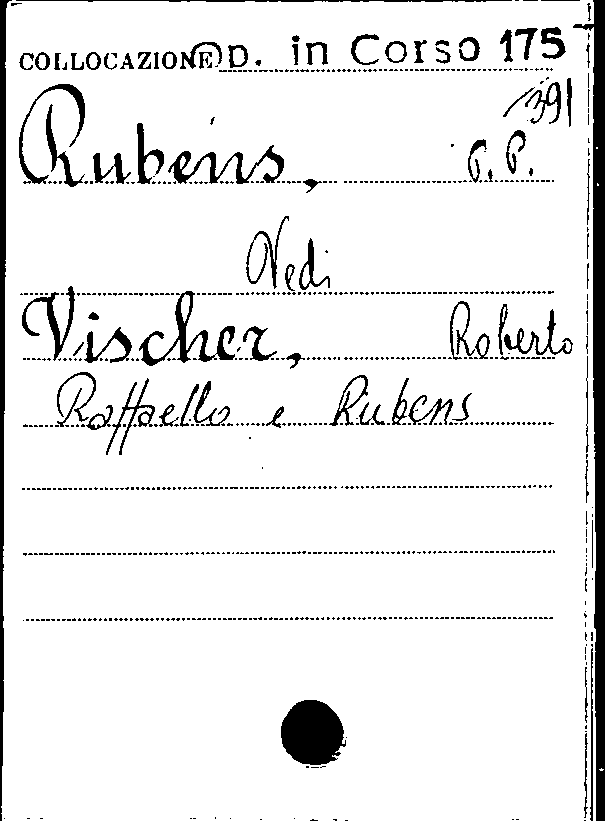 COLLOCAZIONE Op. in Corso 175
391
Rubens, P. P.
Vedi
Vischer, Roberto
Raffaello e Rubens